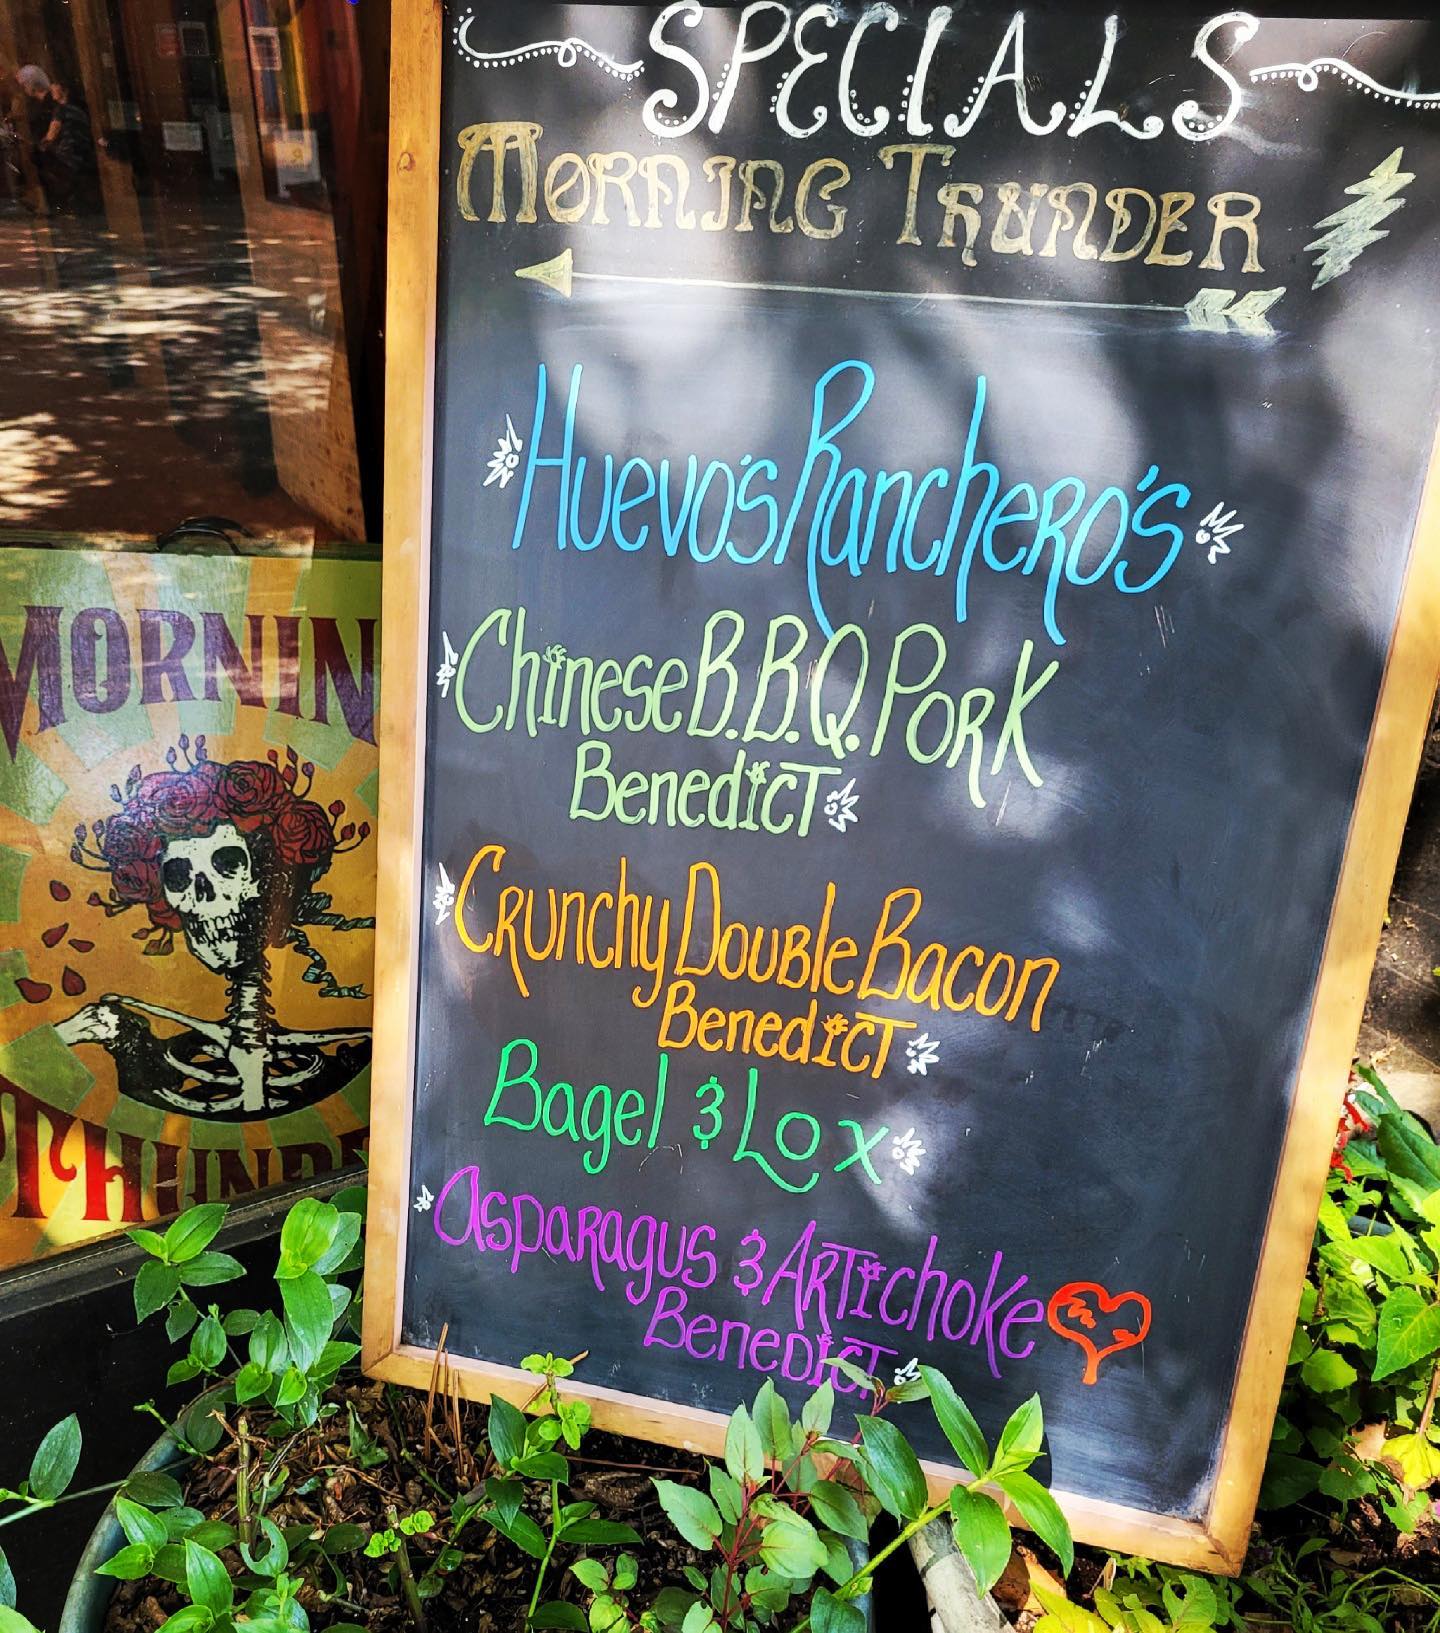 SPECIALS
MORNING THUNDER
HUEVO'S RANCHERO'S
Chinese B.B.Q. PORK
BenedicT
CRUnchy DOUBle Bacon
BenedicT
Bagel & Lox
AspaRagus & ARTichoke
BeneDicT
MORNIN
THUNDE